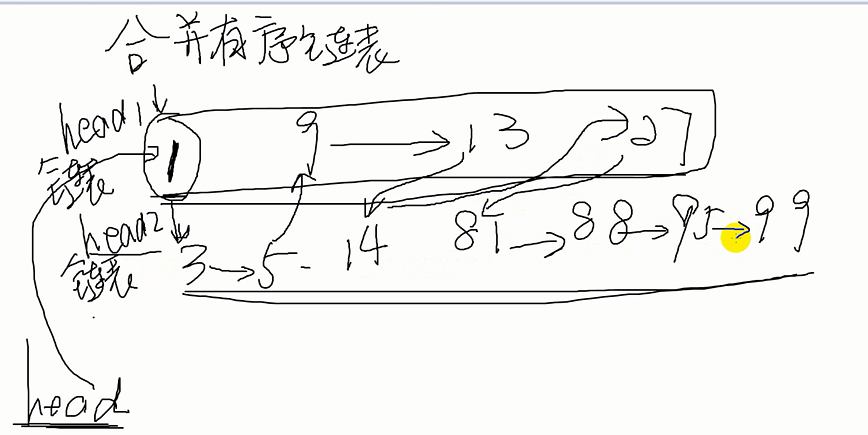 合并有序链表
head1
链表
1 9 13 27
head2
链表
3 5 14 81 88 95 99
head